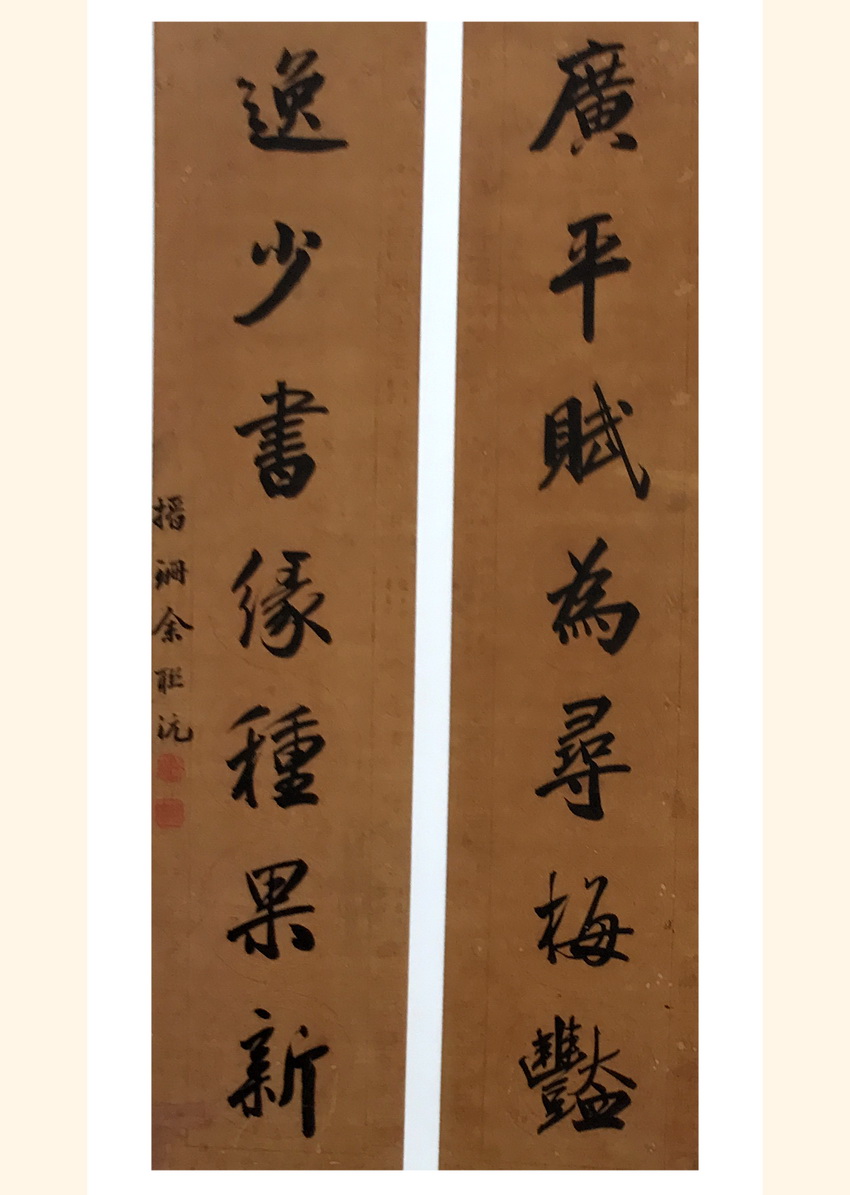 廣平賦為尋梅豔
逸少書緣種果新
搢珊余聯沅